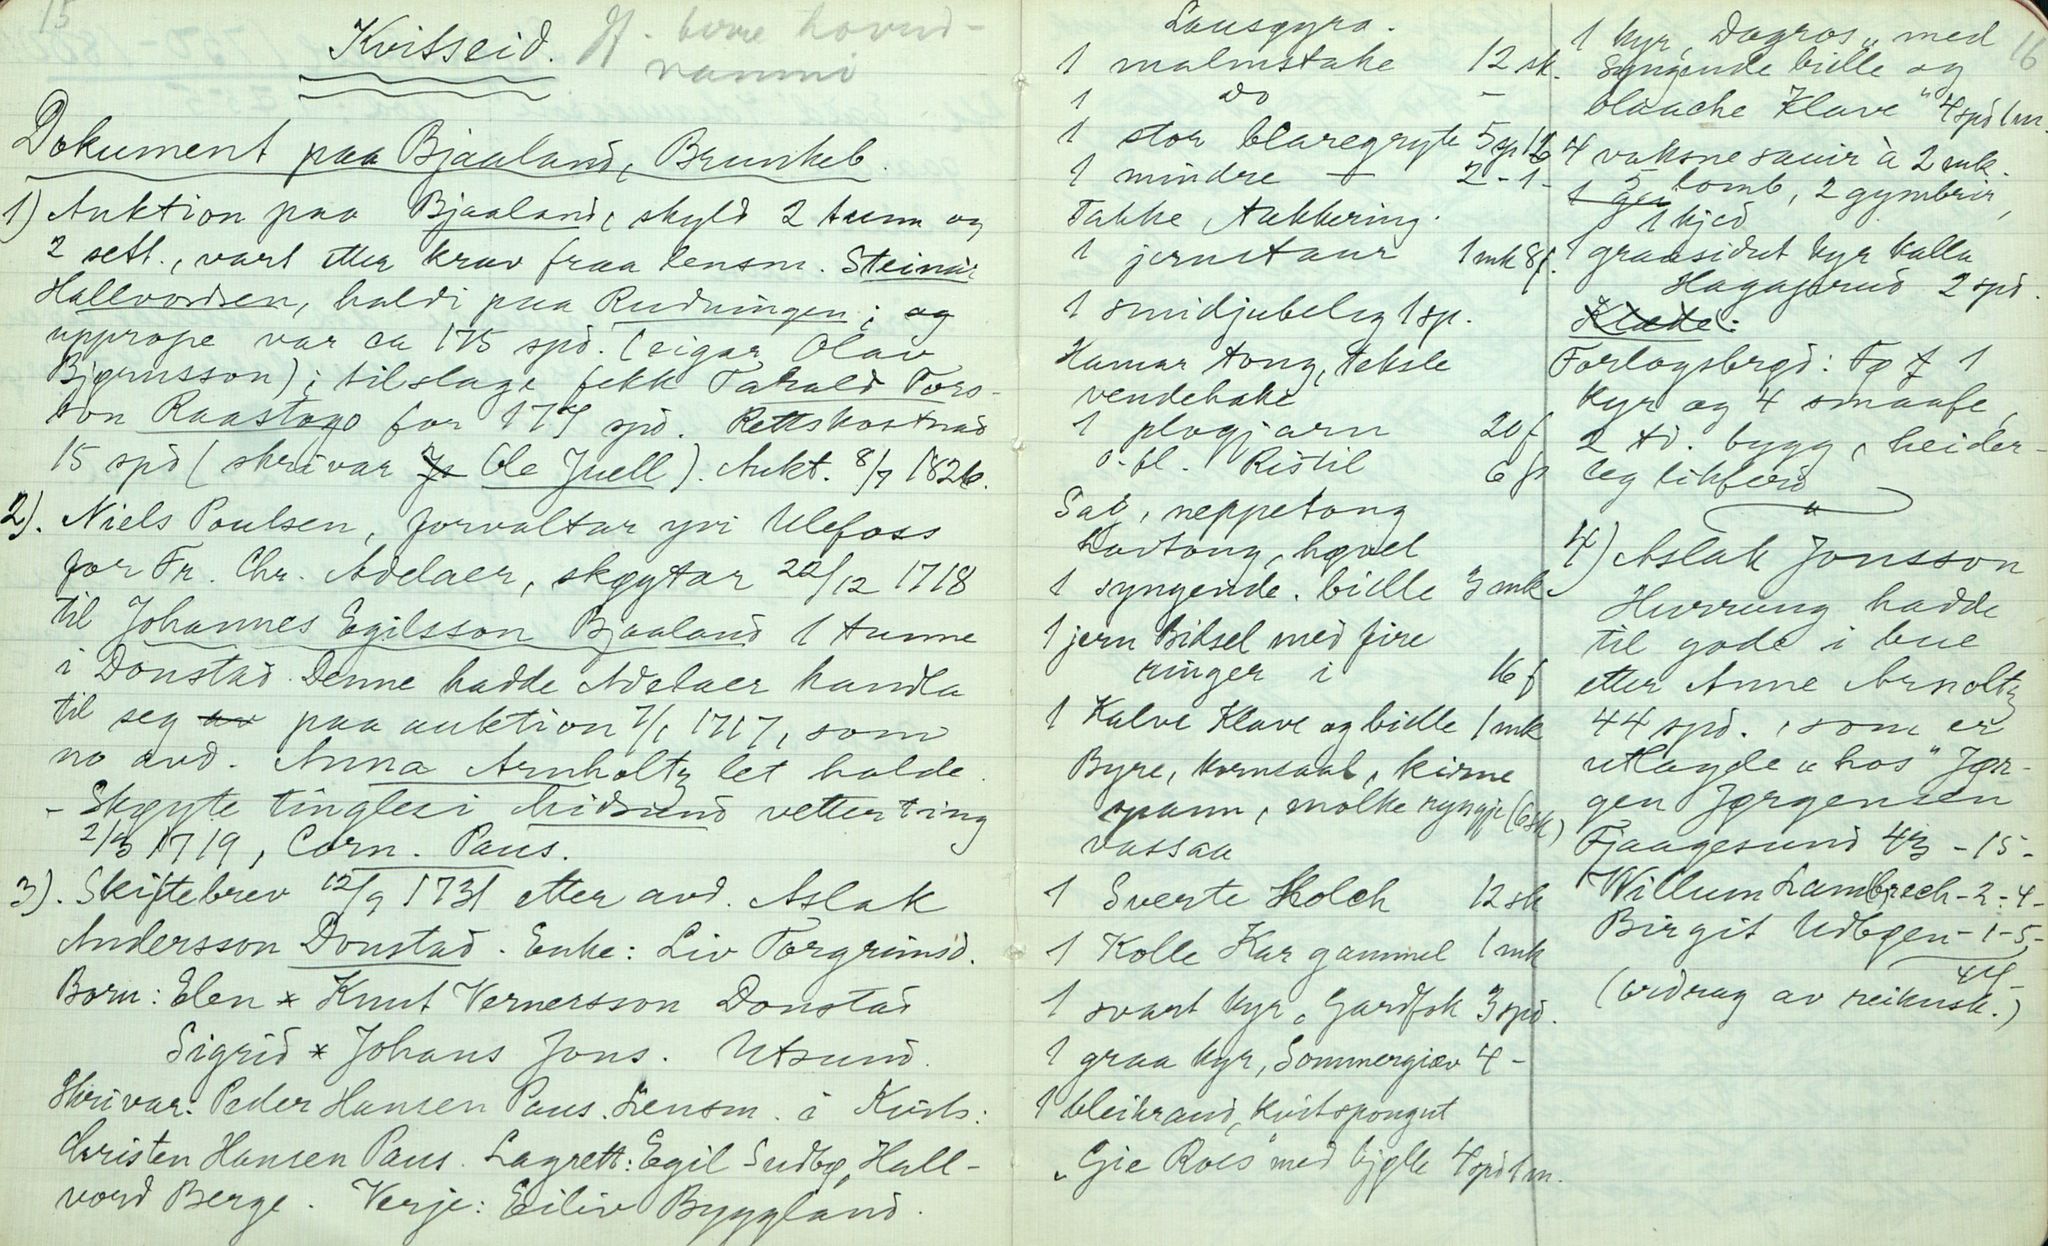 15
Kvitseid.
Dokument paa Bjaaland, Brunkeb.
1) Auktion paa Bjaaland, skyld 2 tunn og
2 sett., vart etter krav fraa lensm. Steinar
Hallvordsen, haldi paa Rudningen; og
upprope var ca 175 spd. (eigar Olav
Bjørnsson); tilslage fekk Tarald Tors-
son Raastogo for 177 spd. Rettskostnad
15 spd (skrivar Ole Juell). Aukt. 8/7 1826.
2). Niels Poulsen, forvaltar yvi Ulefoss
for Fr. Chr. Adelaer, skøytar 20/12 1718
til Johannes Egilsson Bjaaland 1 tunne
i Donstad. Denne hadde Adelaer handla
til seg av paa auktion 7/1 1717, som
no avd. Anna Arnholtz let halde.
- Skøyte tinglesi Midsund vetterting
2/3 1719, Corn. Paus.
3). Skiftebrev 12/9 1731 etter avd. Aslak
Andersson Donstad. Enke: Liv Torgrimsd.
Born: Elen x Knut Vernersson Donstad
Sigrid x Johans Jons. Utsund.
Skrivar: Peder Hansen Paus. Lensm. i Kvits:
Christen Hansen Paus. Lagrett: Egil Sudbø, Hall-
vord Berge. Verje: Eiliv Byggland.
Lausøyra.
1 malmstake 12 sk.
1 do -
1 stor blaregryte 5 sp 1 b
1 mindre — 2 - 1 -
Takke, takkering.
1 jernstaur 1 mk 8 f.
1 smidjubelg 1 sp.
Hamar tong, teksle
vendehake
1 plogjarn 20 f
o. fl. Ristil 6 f
Sag, neppetong
høvel
1 syngende. bidle 3 mk.
1 jern Bidsel med fire
ringer i 16 f
1 Kalve Klave og bidle 1 mk
Byre, kornsaal, kirne
spann, molke ryngje (6 sk)
vassaa
1 Sverte Holck 12 sk
1 Kolle Kar gammel 1 mk
1 svart kyr, Gardfok 3 spd.
1 graa kyr, Sommergiæv 4 -
1 bleikrand, kvitspongut
"Gie Roes" med bjølle 4 spd 1 m.
16
1 kyr "Dagros" med
syngende bidle og
blaache Klave" 4 spd 1 m.
4 vaksne sauir à 2 mk.
5 lomb, 2 gymbrir,
1 kjed
1 graasidut kyr kalla
Hagaprud 2 spd.
Klæde:
Forlogsbrød: 1
kyr og 4 smaafe,
2 td. bygg, heider-
leg likferd
4) Aslak Jonsson
Hvrrung hadde
til gode i bue
etter Anne Arnoltz
44 spd., som er
utlagde "hos" Jør-
gen Jørgensen
Fjaagesund 43 - 15 -
Willum Lambrech - 2 - 4 -
Birgit Udbøen - 1 - 5,
44 -
(utdrag av reiknsk.)